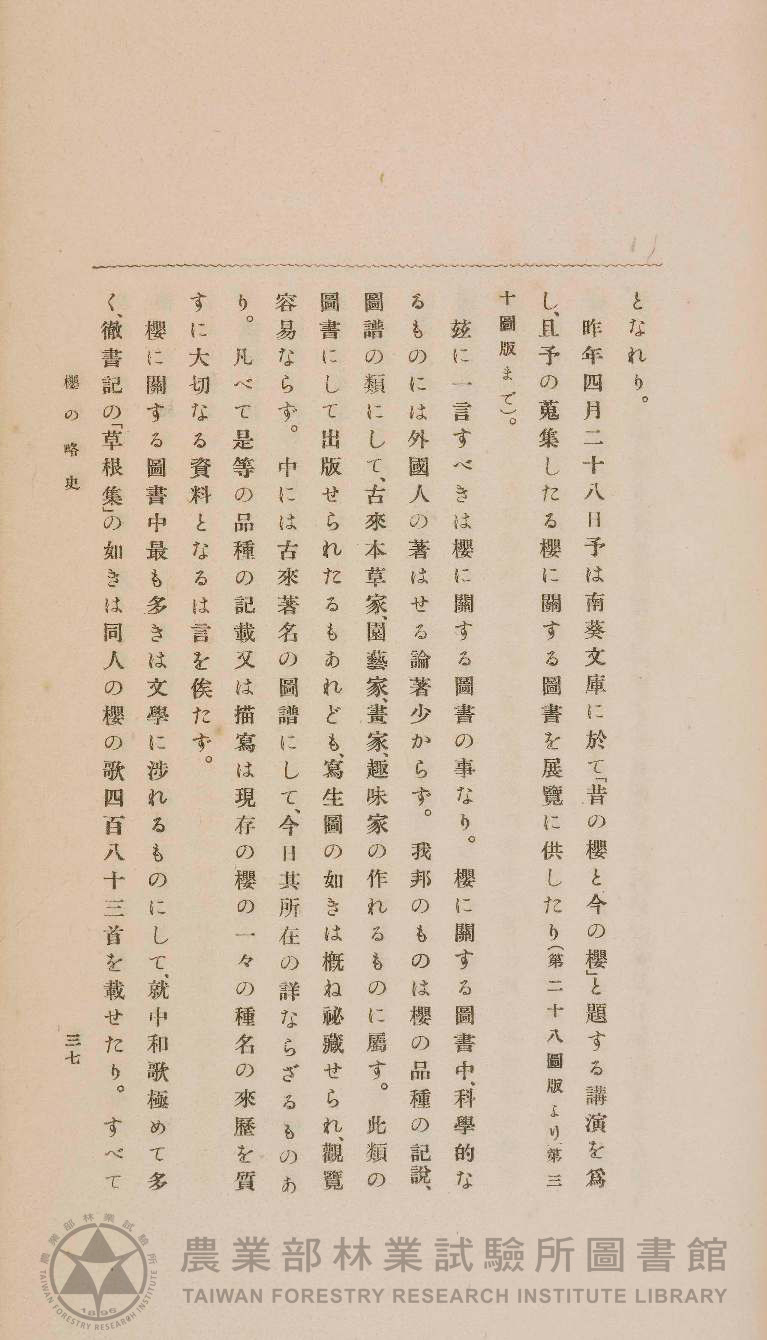 となれり。
昨年四月二十八日予は南葵文庫に於て「昔の櫻と今の櫻」と題する講演を爲
し、且予の蒐集したる櫻に關する圖書を展覽に供したり(第二十八圖版より第三
十圖版まで)。
玆に一言すべきは櫻に關する圖書の事なり。櫻に關する圖書中、科學的な
るものには外國人の著はせる論著少からず。我邦のものは櫻の品種の記說、
圖譜の類にして、古來本草家、園藝家、畫家、趣味家の作れるものに屬す。此類の
圖書にして出版せられたるもあれども、寫生圖の如きは槪ね祕藏せられ、觀覽
容易ならず。中には古來著名の圖譜にして、今日其所在の詳ならざるものあ
り。凡べて是等の品種の記載又は描寫は現存の櫻の一々の種名の來歷を質
すに大切なる資料となるは言を俟たず。
櫻に關する圖書中最も多きは文學に涉れるものにして、就中和歌極めて多
く、徹書記の「草根集」の如きは同人の櫻の歌四百八十三首を載せたり。すべて
櫻の略史
三七
農業部林業試驗所圖書館
TAIWAN FORESTRY RESEARCH INSTITUTE LIBRARY
農業部林業試驗所
TAIWAN FORESTRY RESEARCH INSTITUTE
1896